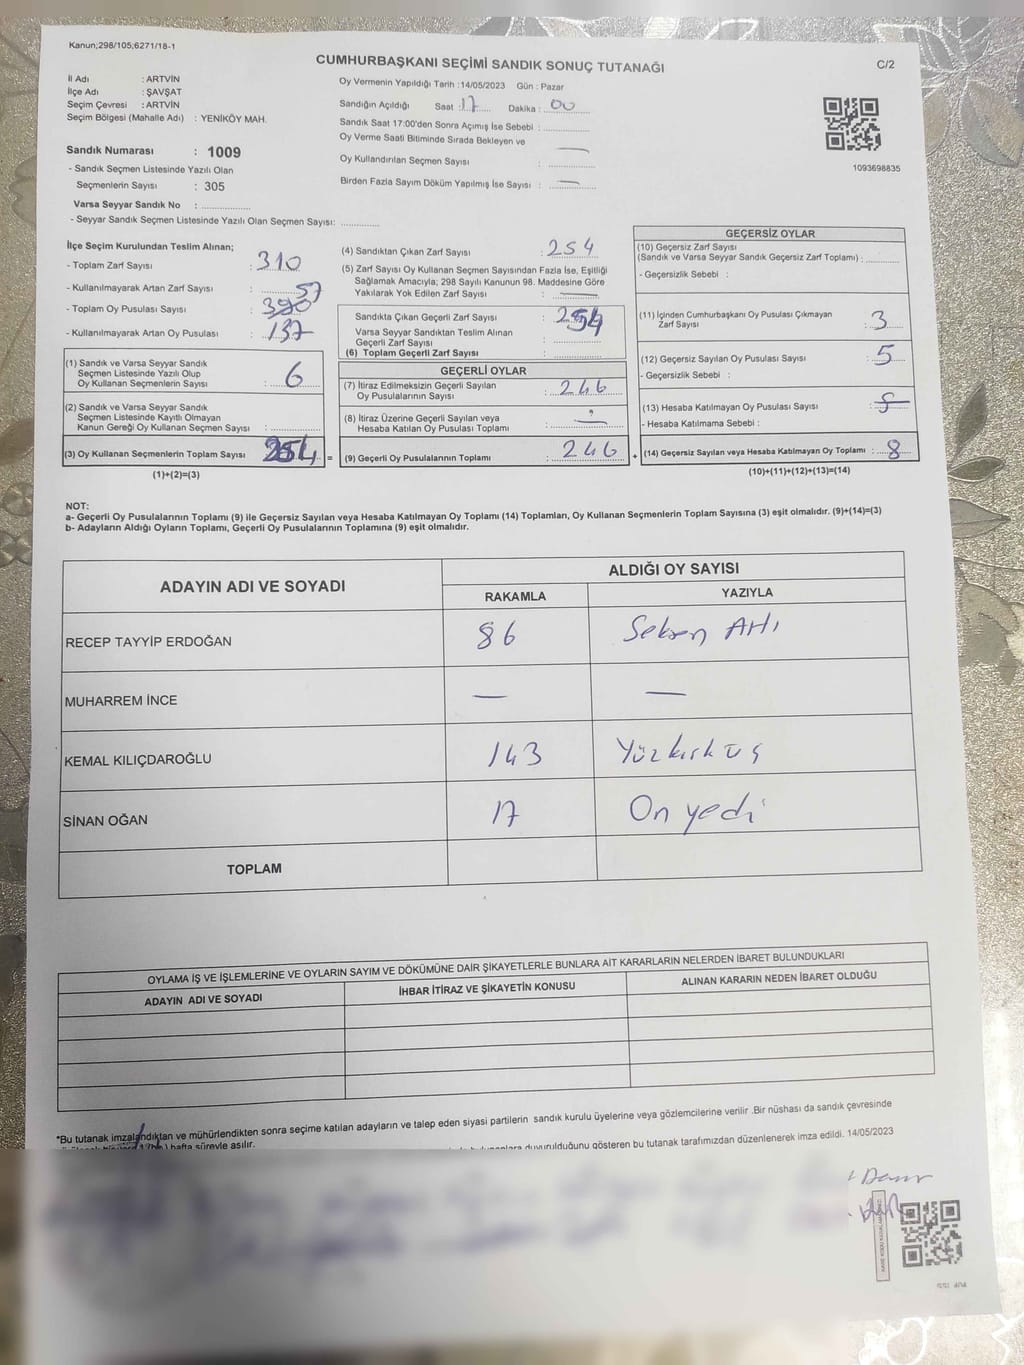 Kanun;298/105;6271/18-1
CUMHURBAŞKANI SEÇİMİ SANDIK SONUÇ TUTANAĞI
C/2
İl Adı : ARTVİN
İlçe Adı : ŞAVŞAT
Seçim Çevresi : ARTVİN
Seçim Bölgesi (Mahalle Adı) : YENİKÖY MAH.
Sandık Numarası : 1009
- Sandık Seçmen Listesinde Yazılı Olan
Seçmenlerin Sayısı : 305
Varsa Seyyar Sandık No :
- Seyyar Sandık Seçmen Listesinde Yazılı Olan Seçmen Sayısı:
Oy Vermenin Yapıldığı Tarih :14/05/2023 Gün : Pazar
Sandığın Açıldığı Saat : 17 Dakika : 00
Sandık Saat 17:00'den Sonra Açımış İse Sebebi :
Oy Verme Saati Bitiminde Sırada Bekleyen ve
Oy Kullandırılan Seçmen Sayısı : —
Birden Fazla Sayım Döküm Yapılmış İse Sayısı : —
1093698835
İlçe Seçim Kurulundan Teslim Alınan;
- Toplam Zarf Sayısı : 310
- Kullanılmayarak Artan Zarf Sayısı : 57
- Toplam Oy Pusulası Sayısı :
- Kullanılmayarak Artan Oy Pusulası : 137
(1) Sandık ve Varsa Seyyar Sandık
Seçmen Listesinde Yazılı Olup
Oy Kullanan Seçmenlerin Sayısı : 6
(2) Sandık ve Varsa Seyyar Sandık
Seçmen Listesinde Kayıtlı Olmayan
Kanun Gereği Oy Kullanan Seçmen Sayısı :
(3) Oy Kullanan Seçmenlerin Toplam Sayısı : 254
(1)+(2)=(3)
(4) Sandıktan Çıkan Zarf Sayısı : 254
(5) Zarf Sayısı Oy Kullanan Seçmen Sayısından Fazla İse, Eşitliği
Sağlamak Amacıyla; 298 Sayılı Kanunun 98. Maddesine Göre
Yakılarak Yok Edilen Zarf Sayısı : —
Sandıkta Çıkan Geçerli Zarf Sayısı : 254
Varsa Seyyar Sandıktan Teslim Alınan
Geçerli Zarf Sayısı :
(6) Toplam Geçerli Zarf Sayısı :
GEÇERLİ OYLAR
(7) İtiraz Edilmeksizin Geçerli Sayılan
Oy Pusulalarının Sayısı : 246
(8) İtiraz Üzerine Geçerli Sayılan veya
Hesaba Katılan Oy Pusulası Toplamı : —
= (9) Geçerli Oy Pusulalarının Toplamı : 246
GEÇERSİZ OYLAR
(10) Geçersiz Zarf Sayısı
(Sandık ve Varsa Seyyar Sandık Geçersiz Zarf Toplamı) :
- Geçersizlik Sebebi :
(11) İçinden Cumhurbaşkanı Oy Pusulası Çıkmayan
Zarf Sayısı : 3
(12) Geçersiz Sayılan Oy Pusulası Sayısı : 5
- Geçersizlik Sebebi :
(13) Hesaba Katılmayan Oy Pusulası Sayısı :
- Hesaba Katılmama Sebebi :
+ (14) Geçersiz Sayılan veya Hesaba Katılmayan Oy Toplamı : 8
(10)+(11)+(12)+(13)=(14)
NOT:
a- Geçerli Oy Pusulalarının Toplamı (9) ile Geçersiz Sayılan veya Hesaba Katılmayan Oy Toplamı (14) Toplamları, Oy Kullanan Seçmenlerin Toplam Sayısına (3) eşit olmalıdır. (9)+(14)=(3)
b- Adayların Aldığı Oyların Toplamı, Geçerli Oy Pusulalarının Toplamına (9) eşit olmalıdır.
ADAYIN ADI VE SOYADI
ALDIĞI OY SAYISI
RAKAMLA YAZIYLA
RECEP TAYYİP ERDOĞAN 86 Seksen Altı
MUHARREM İNCE — —
KEMAL KILIÇDAROĞLU 143 Yüzkırk üç
SİNAN OĞAN 17 On yedi
TOPLAM
OYLAMA İŞ VE İŞLEMLERİNE VE OYLARIN SAYIM VE DÖKÜMÜNE DAİR ŞİKAYETLERLE BUNLARA AİT KARARLARIN NELERDEN İBARET BULUNDUKLARI
ADAYIN ADI VE SOYADI İHBAR İTİRAZ VE ŞİKAYETİN KONUSU ALINAN KARARIN NEDEN İBARET OLDUĞU
*Bu tutanak imzalandıktan ve mühürlendikten sonra seçime katılan adayların ve talep eden siyasi partilerin sandık kurulu üyelerine veya gözlemcilerine verilir .Bir nüshası da sandık çevresinde
hafta süreyle asılır. duyurulduğunu gösteren bu tutanak tarafımızdan düzenlenerek imza edildi. 14/05/2023